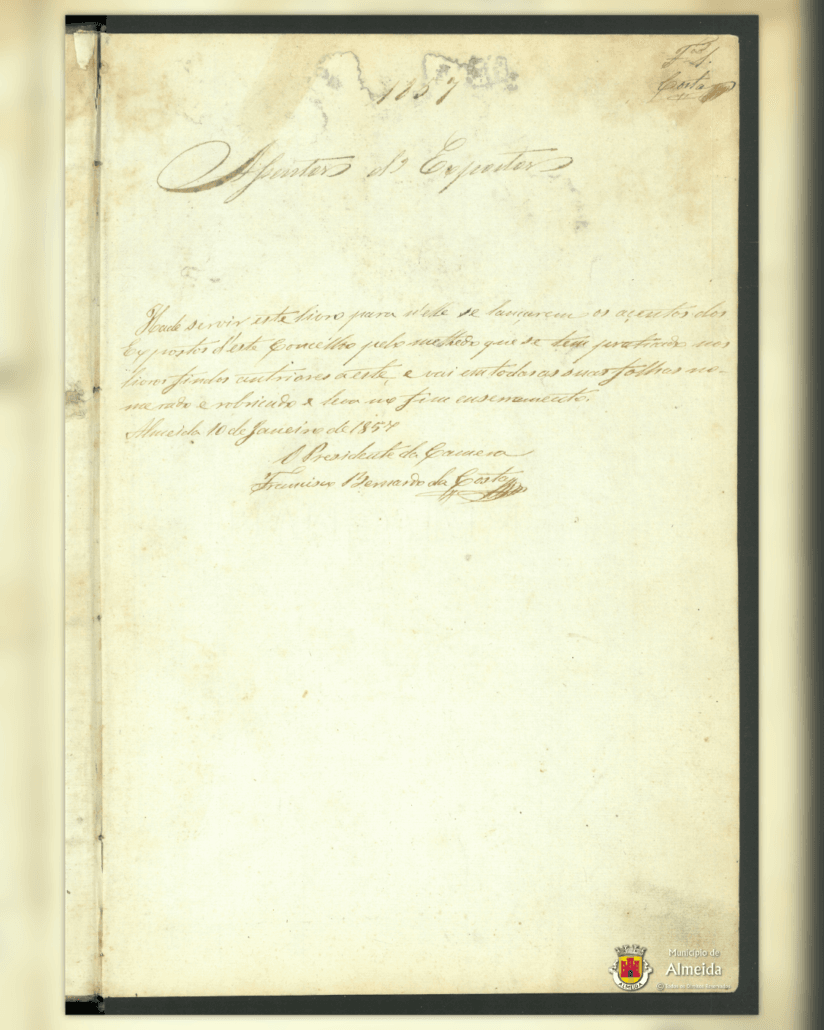 1857
Costa
Assentos d'Expostos
Hade servir este livro para n'elle se lançarem os acentos dos
Expostos d'este Concelho pelo methodo que se tem praticado nos
livros findos antriores a este, e vai em todas as suas folhas no-
merado e robricado e leva no fim enserramento.
Almeida 10 de Janeiro de 1857
O Presidente da Camera
Francisco Bernardo da Costa
Município de
Almeida
ALMEIDA